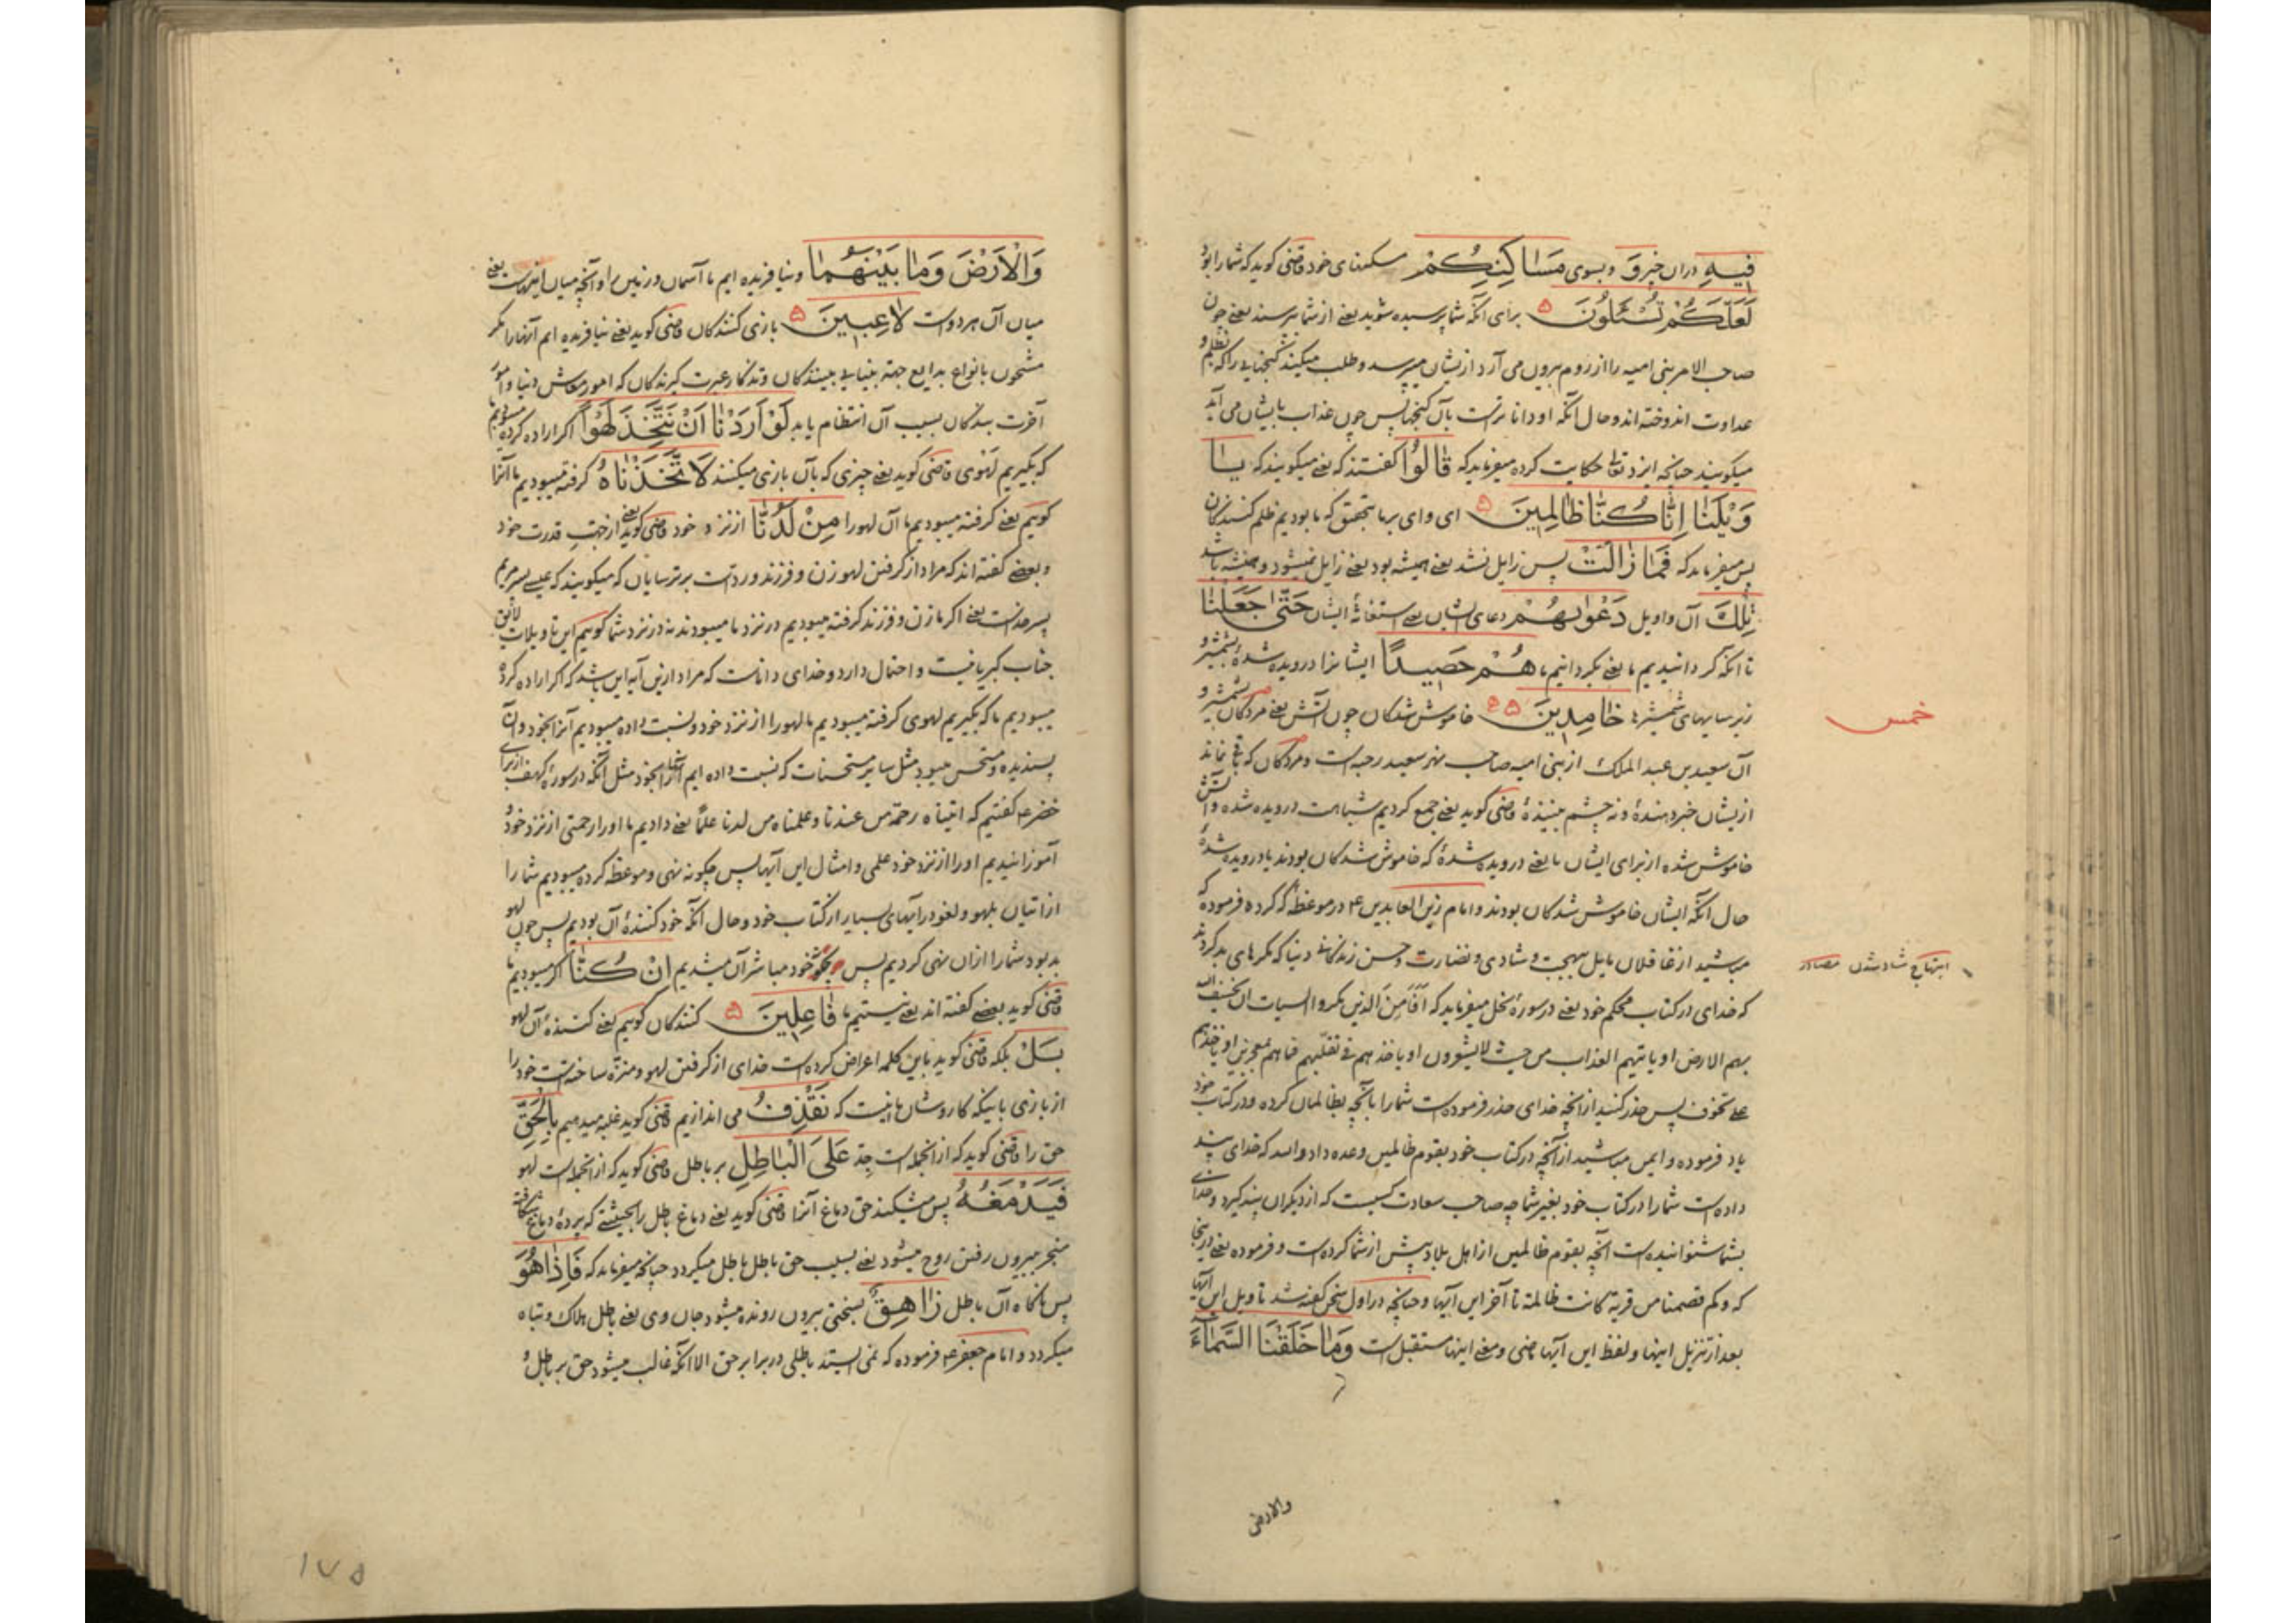 فیهِ دران خبر وَ و بسوی مَسَاکِنِکُمْ سکنهای خود قاضی کوید که شما را بود
لَعَلَّکُمْ تُسْئَلُونَ ۵ برای آنکه شما پرسیده شوید یعنی از شما پرسند یعنی چون
صاحب الامر بنی امیه را از روم بیرون می آرد از یشان میپرسد و طلب میکند کنجهایی را که بظلم و
عداوت اندوخته اند و حال آنکه او داناترست بآن کنجها پس چون عذاب بایشان می آید
میکویند چنانچه ایزد تعالی حکایت کرده میفرماید که قَالُوا کفتند که یعنی میکویند که یَا
وَیْلَنَا اِنَّا کُنَّا ظَالِمِینَ ۵ ای وای بر ما بتحقیق که ما بودیم ظلم کنندکان
پس میفرماید که فَمَا زَالَتْ پس زایل نشد یعنی همیشه بود یعنی زایل نمیشود و همیشه باشد
تِلْکَ آن واویل دَعْوٰیهُمْ دعای ایشان یعنی استغاثۀ ایشان حَتّٰی جَعَلْنَا
تا آنکه کردانیدیم ما یعنی بکردانیم ما هُمْ حَصِیدًا ایشانرا درویده شدۀ بشمشیر و
زیر سایهای شمشیرها خَامِدِینَ ۵ خاموش شدکان چون آتش یعنی مردکان بشمشیر و
خمس
آن سعید بن عبد الملک از بنی امیه صاحب نهر سعید رحبه است و مردکان که باقی نماند
ازیشان خبر دهندۀ و نه چشم بینندۀ قاضی کوید یعنی جمع کردیم شباهت درویده شده و آتش
خاموش شده از برای ایشان ما یعنی درویده شدۀ که خاموش شدکان بودند یا درویده شدۀ
حال آنکه ایشان خاموش شدکان بودند و امام زین العابدین ع در موعظۀ که کرده فرموده که
مباشید از غافلان مایل ببهجت و شادی و نضارت و حسن زندکانی دنیا که مکرهای بد کردند
ابتهاج شاد شدن مصادر
که خدای در کتاب محکم خود یعنی در سورۀ نحل میفرماید که اَفَاَمِنَ الذین مکروا السیئات ان یخسف الله
بهم الارض او یاتیهم العذاب من حیث لا یشعرون او یاخذهم فی تقلبهم فما هم بمعجزین او یاخذهم
علی تخوف پس حذر کنید از آنچه خدای حذر فرموده است شما را بآنچه بظالمان کرده و در کتاب خود
یاد فرموده و ایمن مباشید از آنچه در کتاب خود بقوم ظالمین وعده داد والله که خدای پند
داده است شما را در کتاب خود بغیر شما چه صاحب سعادت کسیست که از دیکران پند کیرد و خدای
بشما شنوانیده است آنچه بقوم ظالمین از اهل بلاد پیش از شما کرده است و فرموده یعنی درینجا
که و کم قصمنا من قریة کانت ظالمة تا آخر این آیها و چنانچه در اول سخن کفته شد تاویل این آیها
بعد از تنزیل اینها و لفظ این آیها ماضی و معنی اینها مستقبل است وَمَا خَلَقْنَا السَّمَاءَ
والارض
وَالْاَرْضَ وَمَا بَیْنَهُمَا و نیافریده ایم ما آسمان و زمین را و آنچه میان اینهاست یعنی
میان آن هر دوست لَاعِبِینَ ۵ بازی کنندکان قاضی کوید یعنی نیافریده ایم آنها را مکر
مشحون بانواع بدایع جهة بینایی بینندکان و تذکار عبرت کیرندکان که امور معاش دنیا و امور
آخرت بندکان بسبب آن انتظام یابد لَوْ اَرَدْنَا اَنْ نَتَّخِذَ لَهْوًا اکر اراده کرده میبودیم ما
که بکیریم لهوی قاضی کوید یعنی چیزی که بآن بازی میکنند لَاتَّخَذْنَاهُ کرفته میبودیم ما آنرا
کوییم یعنی کرفته میبودیم ما آن لهو را مِنْ لَدُنَّا از نزد خود قاضی کوید یعنی از جهت قدرت خود
و بعضی کفته اند که مراد از کرفتن لهو زن و فرزند و ردّست بر ترسایان که میکویند که عیسی پسر مریم
پسر خداست یعنی اکر ما زن و فرزند کرفته میبودیم در نزد ما میبودند نه در نزد شما کوییم این تاویلات لایق
جناب کبریا نیست و احتمال دارد و خدای داناست که مراد ازین آیه این باشد که اکر اراده کرده
میبودیم ما که بکیریم لهوی کرفته میبودیم ما لهو را از نزد خود و نسبت داده میبودیم آنرا بخود و آن
پسندیده و مستحسن میبود مثل سایر مستحسنات که نسبت داده ایم آنها را بخود مثل آنکه در سورۀ کهف از برای
خضر ع کفتیم که آتیناه رحمة من عندنا و علمناه من لدنا علمًا یعنی دادیم ما او را رحمتی از نزد خود و
آموزانیدیم او را از نزد خود علمی و امثال این آیها پس چکونه نهی و موعظه کرده میبودیم شما را
از اتیان بلهو و لغو در آیهای بسیار از کتاب خود و حال آنکه خود کنندۀ آن بودیم پس چون لهو
بد بود شما را ازان نهی کردیم پس چکونه خود مباشر آن میشدیم اِنْ کُنَّا اکر میبودیم ما
قاضی کوید بعضی کفته اند یعنی نیستیم ما فَاعِلِینَ ۵ کنندکان کوییم یعنی کنندۀ آن لهو
بَلْ بلکه قاضی کوید باین کلمه اعراض کرده است خدای از کرفتن لهو و منزّه ساخته است خود را
از بازی باینکه کار و شان ما اینست که نَقْذِفُ می اندازیم قاضی کوید غلبه میدهیم بِالْحَقِّ
حق را قاضی کوید که از آنجمله است جدّ عَلَی الْبَاطِلِ بر باطل قاضی کوید که از آنجمله است لهو
فَیَدْمَغُهُ پس میشکند حق دماغ آنرا قاضی کوید یعنی دماغ باطل را بحیثیتی که پردۀ دماغ شکافته
منجر ببیرون رفتن روح میشود یعنی بسبب حق باطل باطل میکردد چنانچه میفرماید که فَاِذَا هُوَ
پس ناکاه آن باطل زَاهِقٌ بسختی بیرون رونده میشود جان وی یعنی باطل هلاک و تباه
میکردد و امام جعفر ع فرموده که نمی ایستد باطلی در برابر حق الا آنکه غالب میشود حق بر باطل و
۱۷۵